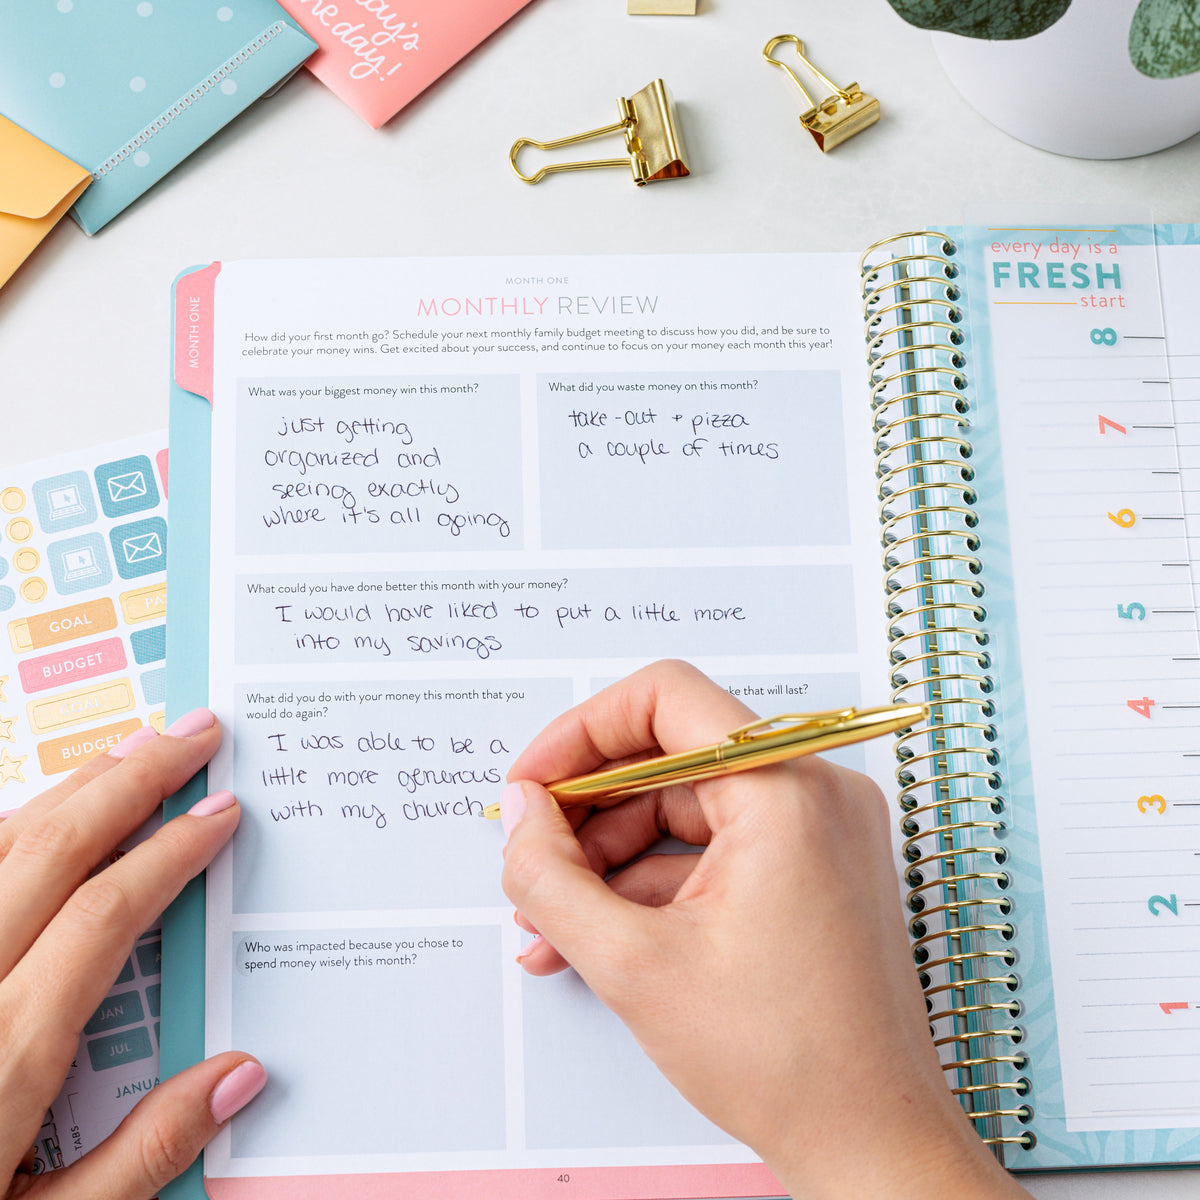 day's
one day!
MONTH ONE
MONTH ONE
MONTHLY REVIEW
How did your first month go? Schedule your next monthly family budget meeting to discuss how you did, and be sure to
celebrate your money wins. Get excited about your success, and continue to focus on your money each month this year!
What was your biggest money win this month?
just getting
organized and
seeing exactly
where it's all going
What did you waste money on this month?
take-out + pizza
a couple of times
What could you have done better this month with your money?
I would have liked to put a little more
into my savings
What did you do with your money this month that you
would do again?
I was able to be a
little more generous
with my church
that will last?
Who was impacted because you chose to
spend money wisely this month?
40
every day is a
FRESH
start
8
7
6
5
4
3
2
1
GOAL
BUDGET
GOAL
BUDGET
JAN
JUL
TABS